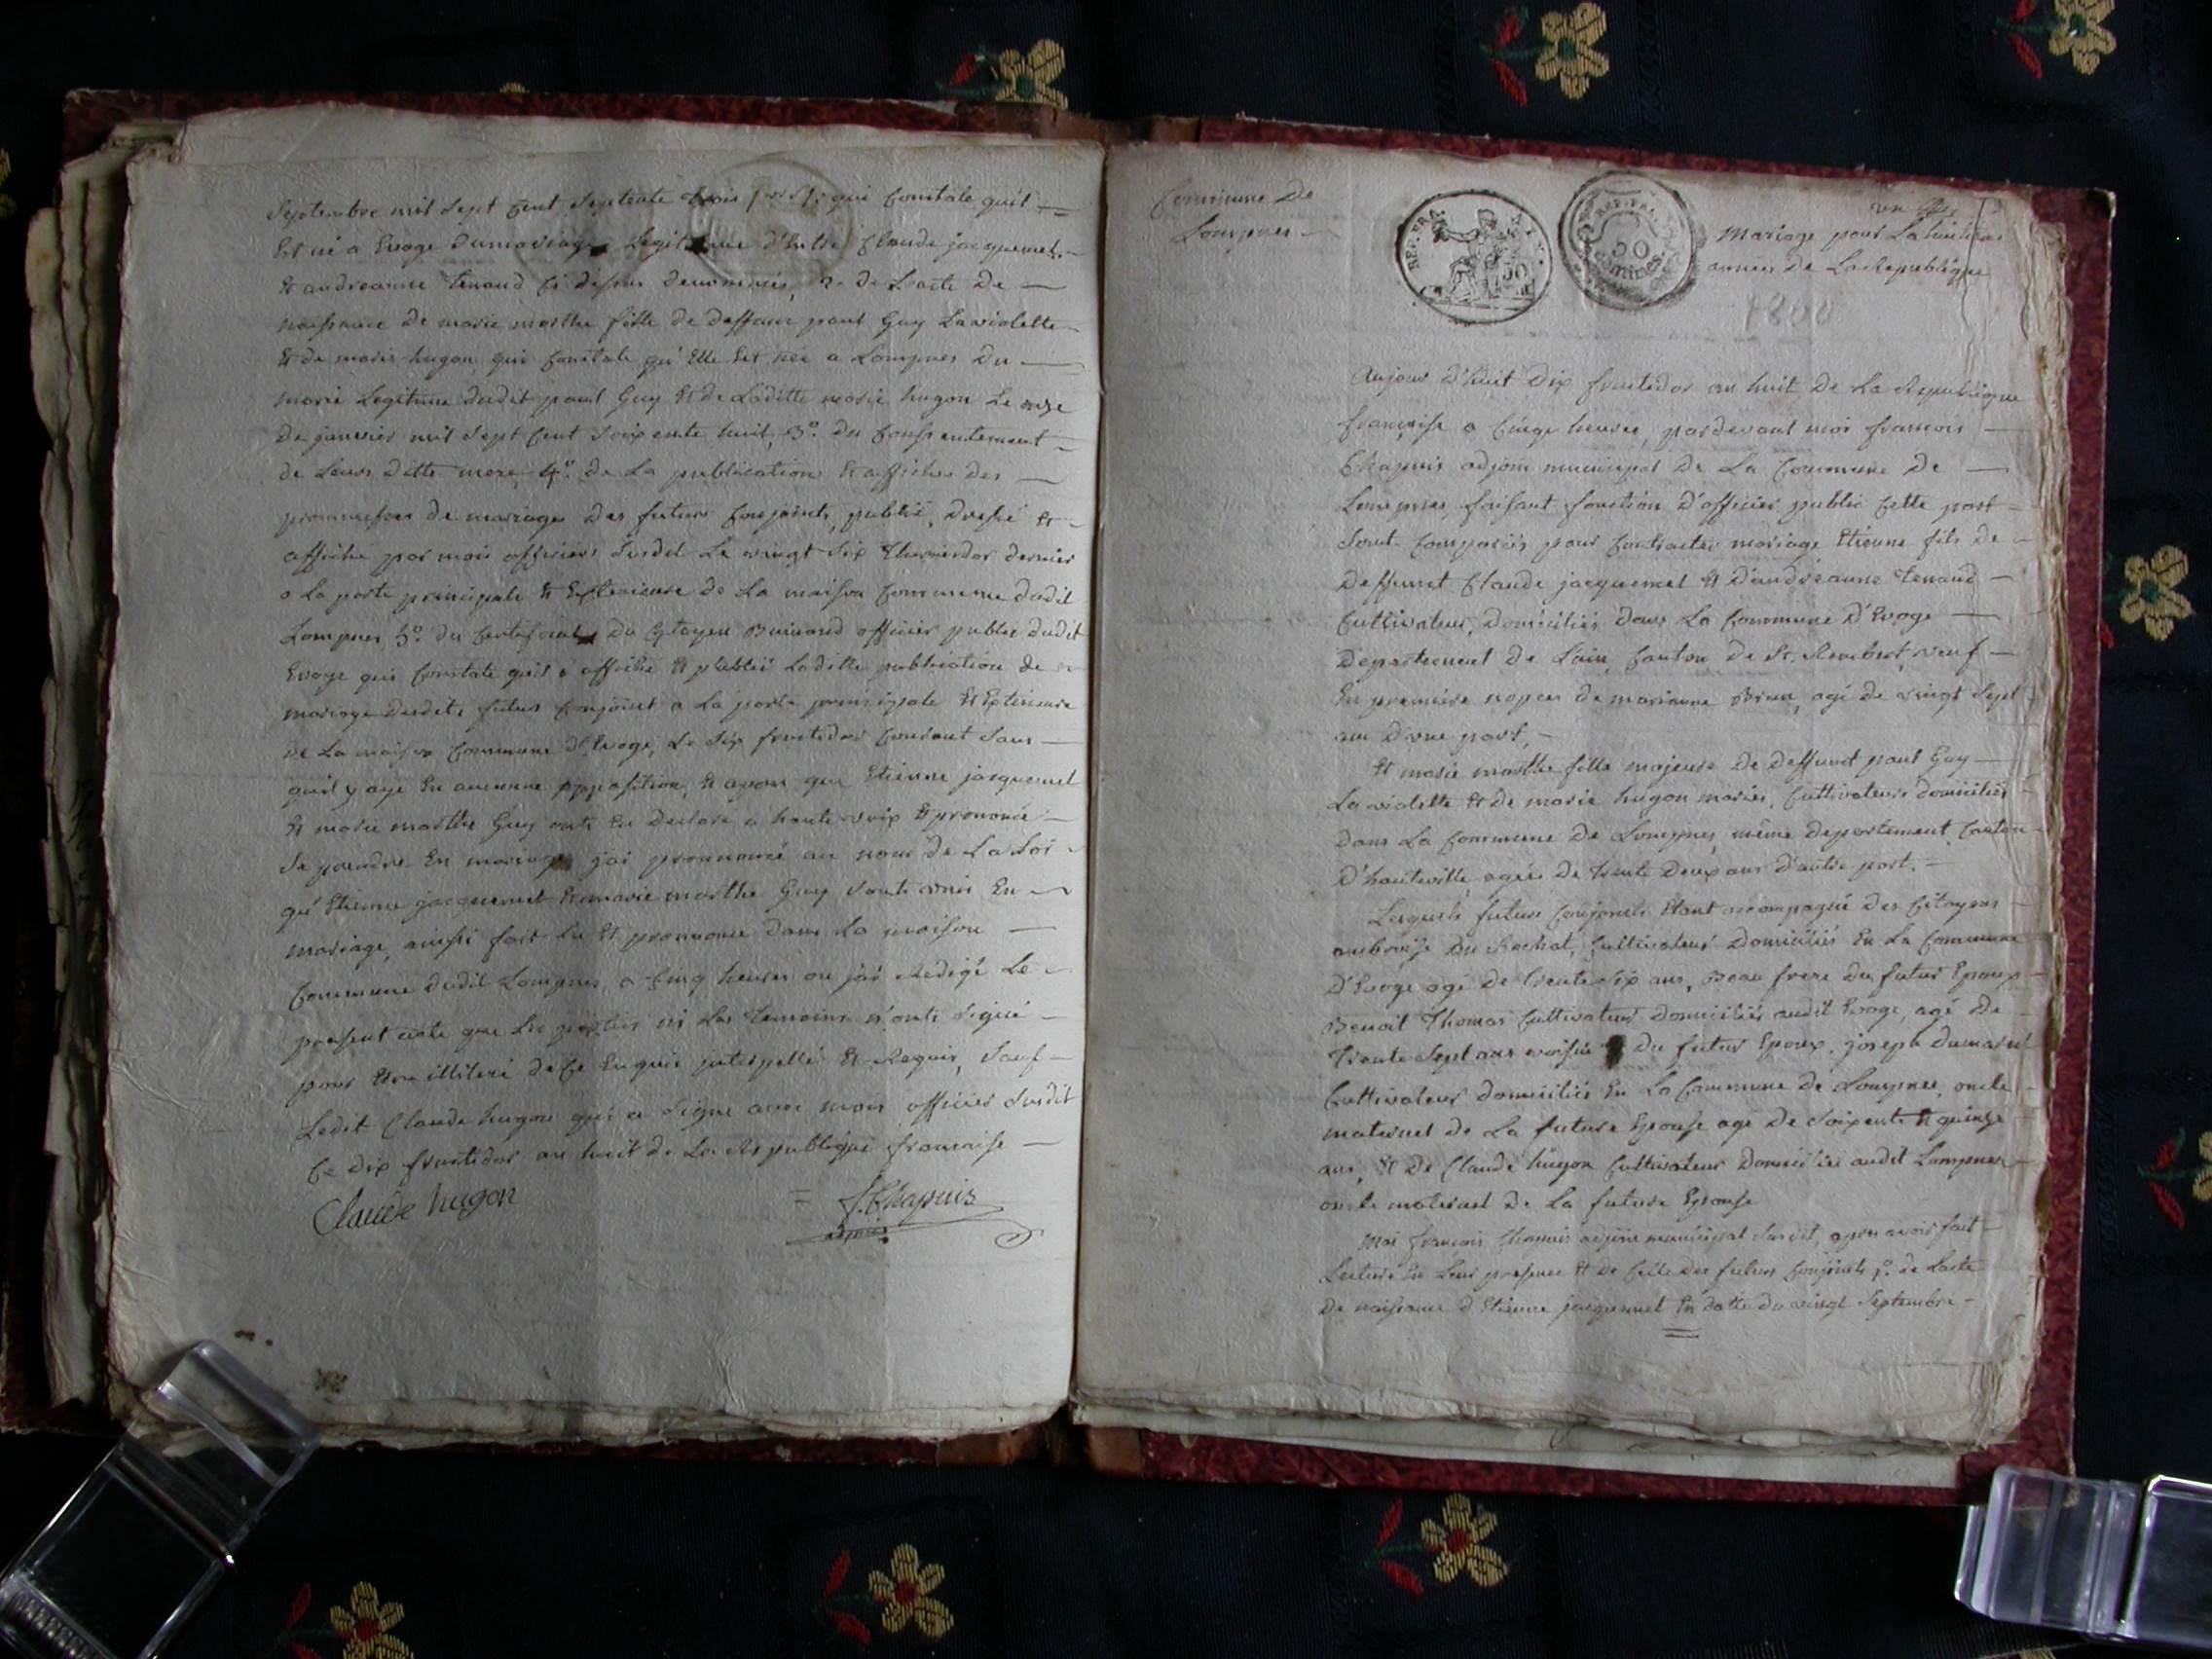 Septembre mil sept cent septente trois qui Constate quil
Est né a Evoge du mariage Legitime d'Entre Claude jacquemet
Et andreanne tenand Ci dessus denommés, 2° de L'acte de
naissance de marie marthe fille de deffunt paul Guy Laviolette
Et de marie hugon qui Constate qu'Elle Est née a Lompnes du
marié Legitime dudit paul Guy Et de Laditte marie hugon Le onze
de janvier mil sept Cent soixente huit, 3°. du Consentement
de Leurs ditte mere 4°. de La publication Et affiches des
promesses de mariage des futurs Conjoints, publié, dressé Et
affiché par mois officiers susdit Le vingt six Thermidor dernier
a La porte principale Et Exterieure de La maison Commune dudit
Lompnes 5°. du Certificat du Citoyen officier public dudit
Evoge qui Constate quil a affiché Et publié Laditte publication de
mariage desdits futurs Conjoint a La porte principale Et Exterieure
de La maison Commune d'Evoge, Le six fructidor Courant sans
quil y aye Eu aucunne opposition, Et apres que Etienne jacquemet
Et marie marthe Guy onts Eu declaré a haute voix Et prononcé
se prendre En mariage jai prononcé au nom de La Loi
qu'Etienne jacquemet Et marie marthe Guy sonts unis En
mariage, ainssi fait Lu Et prononcé dans La maison
Commune dudit Lompnes, a Cinq heures ou jai Redigé Le
present acte que Les parties ni Les temoins n'onts signé
pour Etre illiteré de Ce Enquis interpellé Et Requis, sauf
Ledit Claude hugon qui a signe avec mois officier susdit
Ce dix fructidor an huit de La Republique francaise
Claude hugon
f. Chapuis
adjoint
Commune De
Lompnes
REP. FRA.
50
REP. FRA.
50
centimes
Mariage pour La huitieme
année de La Republique
1800
Aujour d'huit Dix fructidor an huit de La Republique
francaise a Cinqe heures, pardevant moi francois
Chapuis adjoin municipal de La Commune de
Lompnes, faisant fonction d'officier public Cette part
sont Comparûs pour Contracter mariage Etienne fils de
deffunct Claude jacquemet Et d'andréanne tenand
Cultivateur, Domiciliés dans La Commune D'Evoge
Departement de Lain Canton de St. Rembert, veuf
En premiere nopces de marianne Brun, agé de vingt sept
ans d'une part,
Et marie marthe fille majeure De Deffunct paul Guy
La violette Et de marie hugon mariés, Cultivateurs domiciliés
dans La Commune De Lompnes, même departement Canton
D'hauteville, agée De trente Deux ans d'autre part.
Lesquels futurs Conjoints Etant accompagné des Citoyens
ambroise Du Rochat, Cultivateur Domiciliés En La Commune
D'Evoge agé de trente six ans, Beau frere du futur Epoux
Benoit Thomas Cultivateur Domiciliés audit Evoge, agé De
trente sept ans voisin du futur Epoux, joseph dumarest
Cultivateur domiciliés En La Commune de Lompnes, oncle
maternel de La future Epouse agé De soixente Et quinze
ans, Et De Claude hugon Cultivateur Domiciliés audit Lompnes
oncle maternel de La future Epouse
Moi francois Chapuis adjoin municipal susdit, apres avoir fait
Lecture En Leur presence Et de Celle des futurs Conjoints 1°. de Lacte
De naissance d'Etienne jacquemet En datte du vingt Septembre